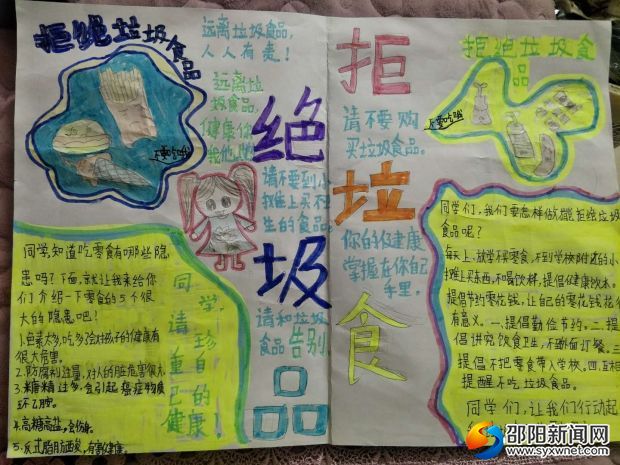 拒绝垃圾食品
远离垃圾食品,
人人有责!
远离垃
圾食品,
健康你
我他
不要吃哦
请不要到小
摊上买不
生的食品。
请和垃圾
食品告别
同学知道吃零食有哪些隐
患吗?下面,就让我来给你
们介绍一下零食的5个很
大的隐患吧!
1.色素太多,吃多了会对孩子的健康有
很大危害。
2.防腐剂过量,对人的脏危害很大
3.糖精过多,会引起癌症物质
环己胺。
4.高糖高盐,会伤身。
5.反式脂肪酸,有害健康。
同学,
请珍
重自
己的
健康!
拒
绝
垃
圾
食
品
请不要购
买垃圾食品。
你的健康
掌握在你自己
手里。
拒绝垃圾食
品
不要吃哦
同学们,我们要怎样做才能拒绝垃圾
食品呢?
每天上、放学不买零食,不到学校附近的小
摊上买东西,不喝饮料,提倡健康饮水。
提倡节约零花钱,让自己的零花钱花
有意义。一.提倡勤俭节约。二.提
倡讲究饮食卫生,不剩饭订餐。三.
提倡不把零食带入学校。四.互相
提醒不吃垃圾食品。
同学们,让我们行动起
邵阳新闻网
www.syxwnet.com